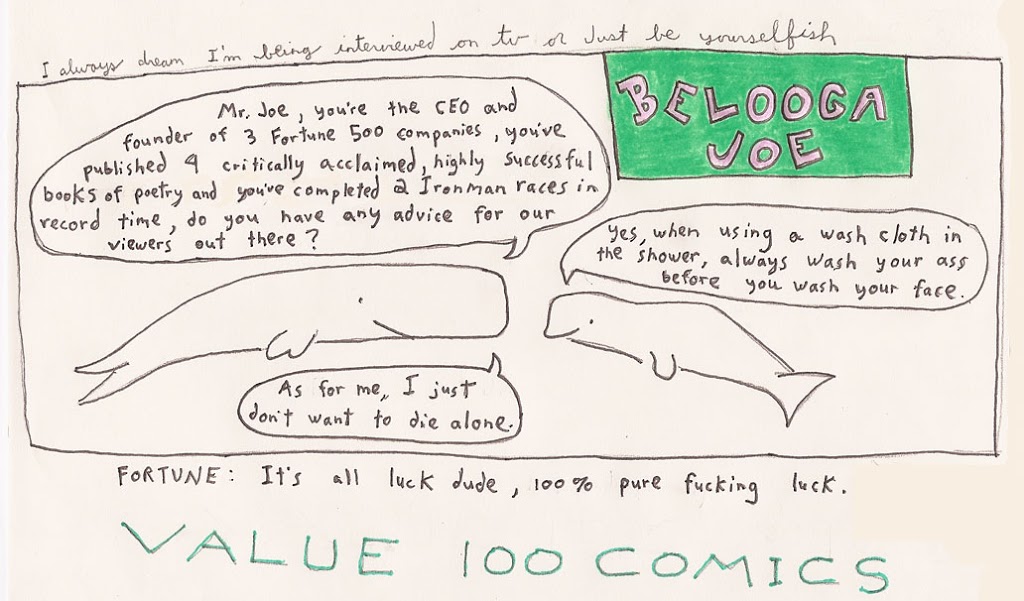 I always dream I'm being interviewed on tv or Just be yourselfish
BELOOGA
JOE
Mr. Joe, you're the CEO and
founder of 3 Fortune 500 companies, you've
published 9 critically acclaimed, highly successful
books of poetry and you've completed 2 Ironman races in
record time, do you have any advice for our
viewers out there?
Yes, when using a wash cloth in
the shower, always wash your ass
before you wash your face.
As for me, I just
don't want to die alone.
FORTUNE: It's all luck dude, 100% pure fucking luck.
VALUE 100 COMICS